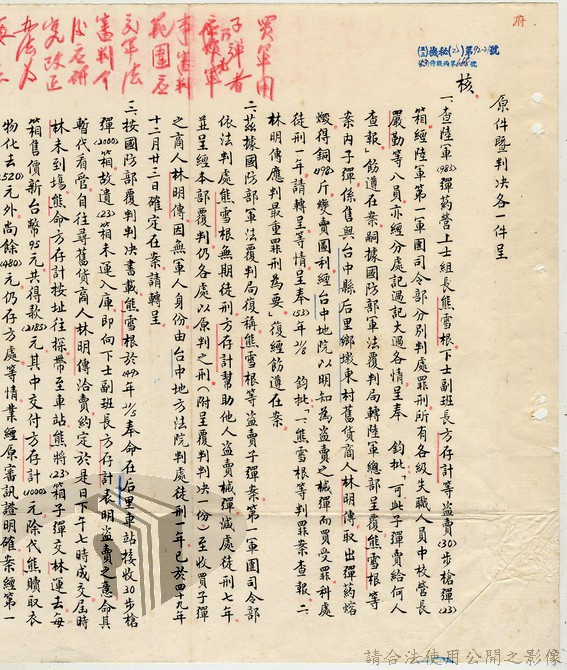 府
原件暨判決各一件呈
核。
一、查陸軍(983)彈葯營上士組長熊雪根下士副班長方存計等盜賣30步槍彈(23)
箱經陸軍第一軍團司令部分別判處罪刑所有各級失職人員中校營長
嚴勤等八員亦經分處記過記大過各情呈奉 鈞批「可此子彈賣給何人
查報」飭遵在案嗣據國防部軍法覆判局轉陸軍總部呈覆熊雪根等
案內子彈係售與台中縣后里鄉墩東村舊貨商人林明傳取出彈葯熔
燬得銅(498)斤變賣圖利經台中地院以明知為盜賣之械彈而買受罪科處
徒刑一年請轉呈等情呈奉 鈞批「一熊雪根等判罪案查報二
林明傳應判最重罪刑為要」復經飭遵在案
二、茲據國防部軍法覆判局復稱熊雪根等盜賣子彈案第一軍團司令部
依法判處熊雪根無期徒刑方存計幫助他人盜賣械彈減處徒刑七年
並呈經本部覆判仍各處以原判之刑(附呈覆判判決一份)至收買子彈
之商人林明傳因無軍人身份由台中地方法院判處徒刑一年已於四十九年
十二月廿三日確定在案請轉呈
三、按國防部覆判判決書載熊雪根於奉命在后里車站接收30步槍
彈(2000)箱故遺(23)箱未運入庫即向下士副班長方存計表明盜賣之意命其
暫代看管自往尋舊貨商人林明傳洽賣約定於是日下午七時成交屆時
林未到場熊命方存計按址往探帶至車站熊將(23)箱子彈交林運去每
箱售價新台幣95元共得款(2185)元其中交付方存計(1000)元除代熊贖取衣
物化去(520)元外尚餘(480)元仍存方處等情業經原審訊證明確案經第一
買軍用
子彈者
軍審判
範圍應
交軍法
審判
應研
究改正
辦法
請合法使用公開之影像